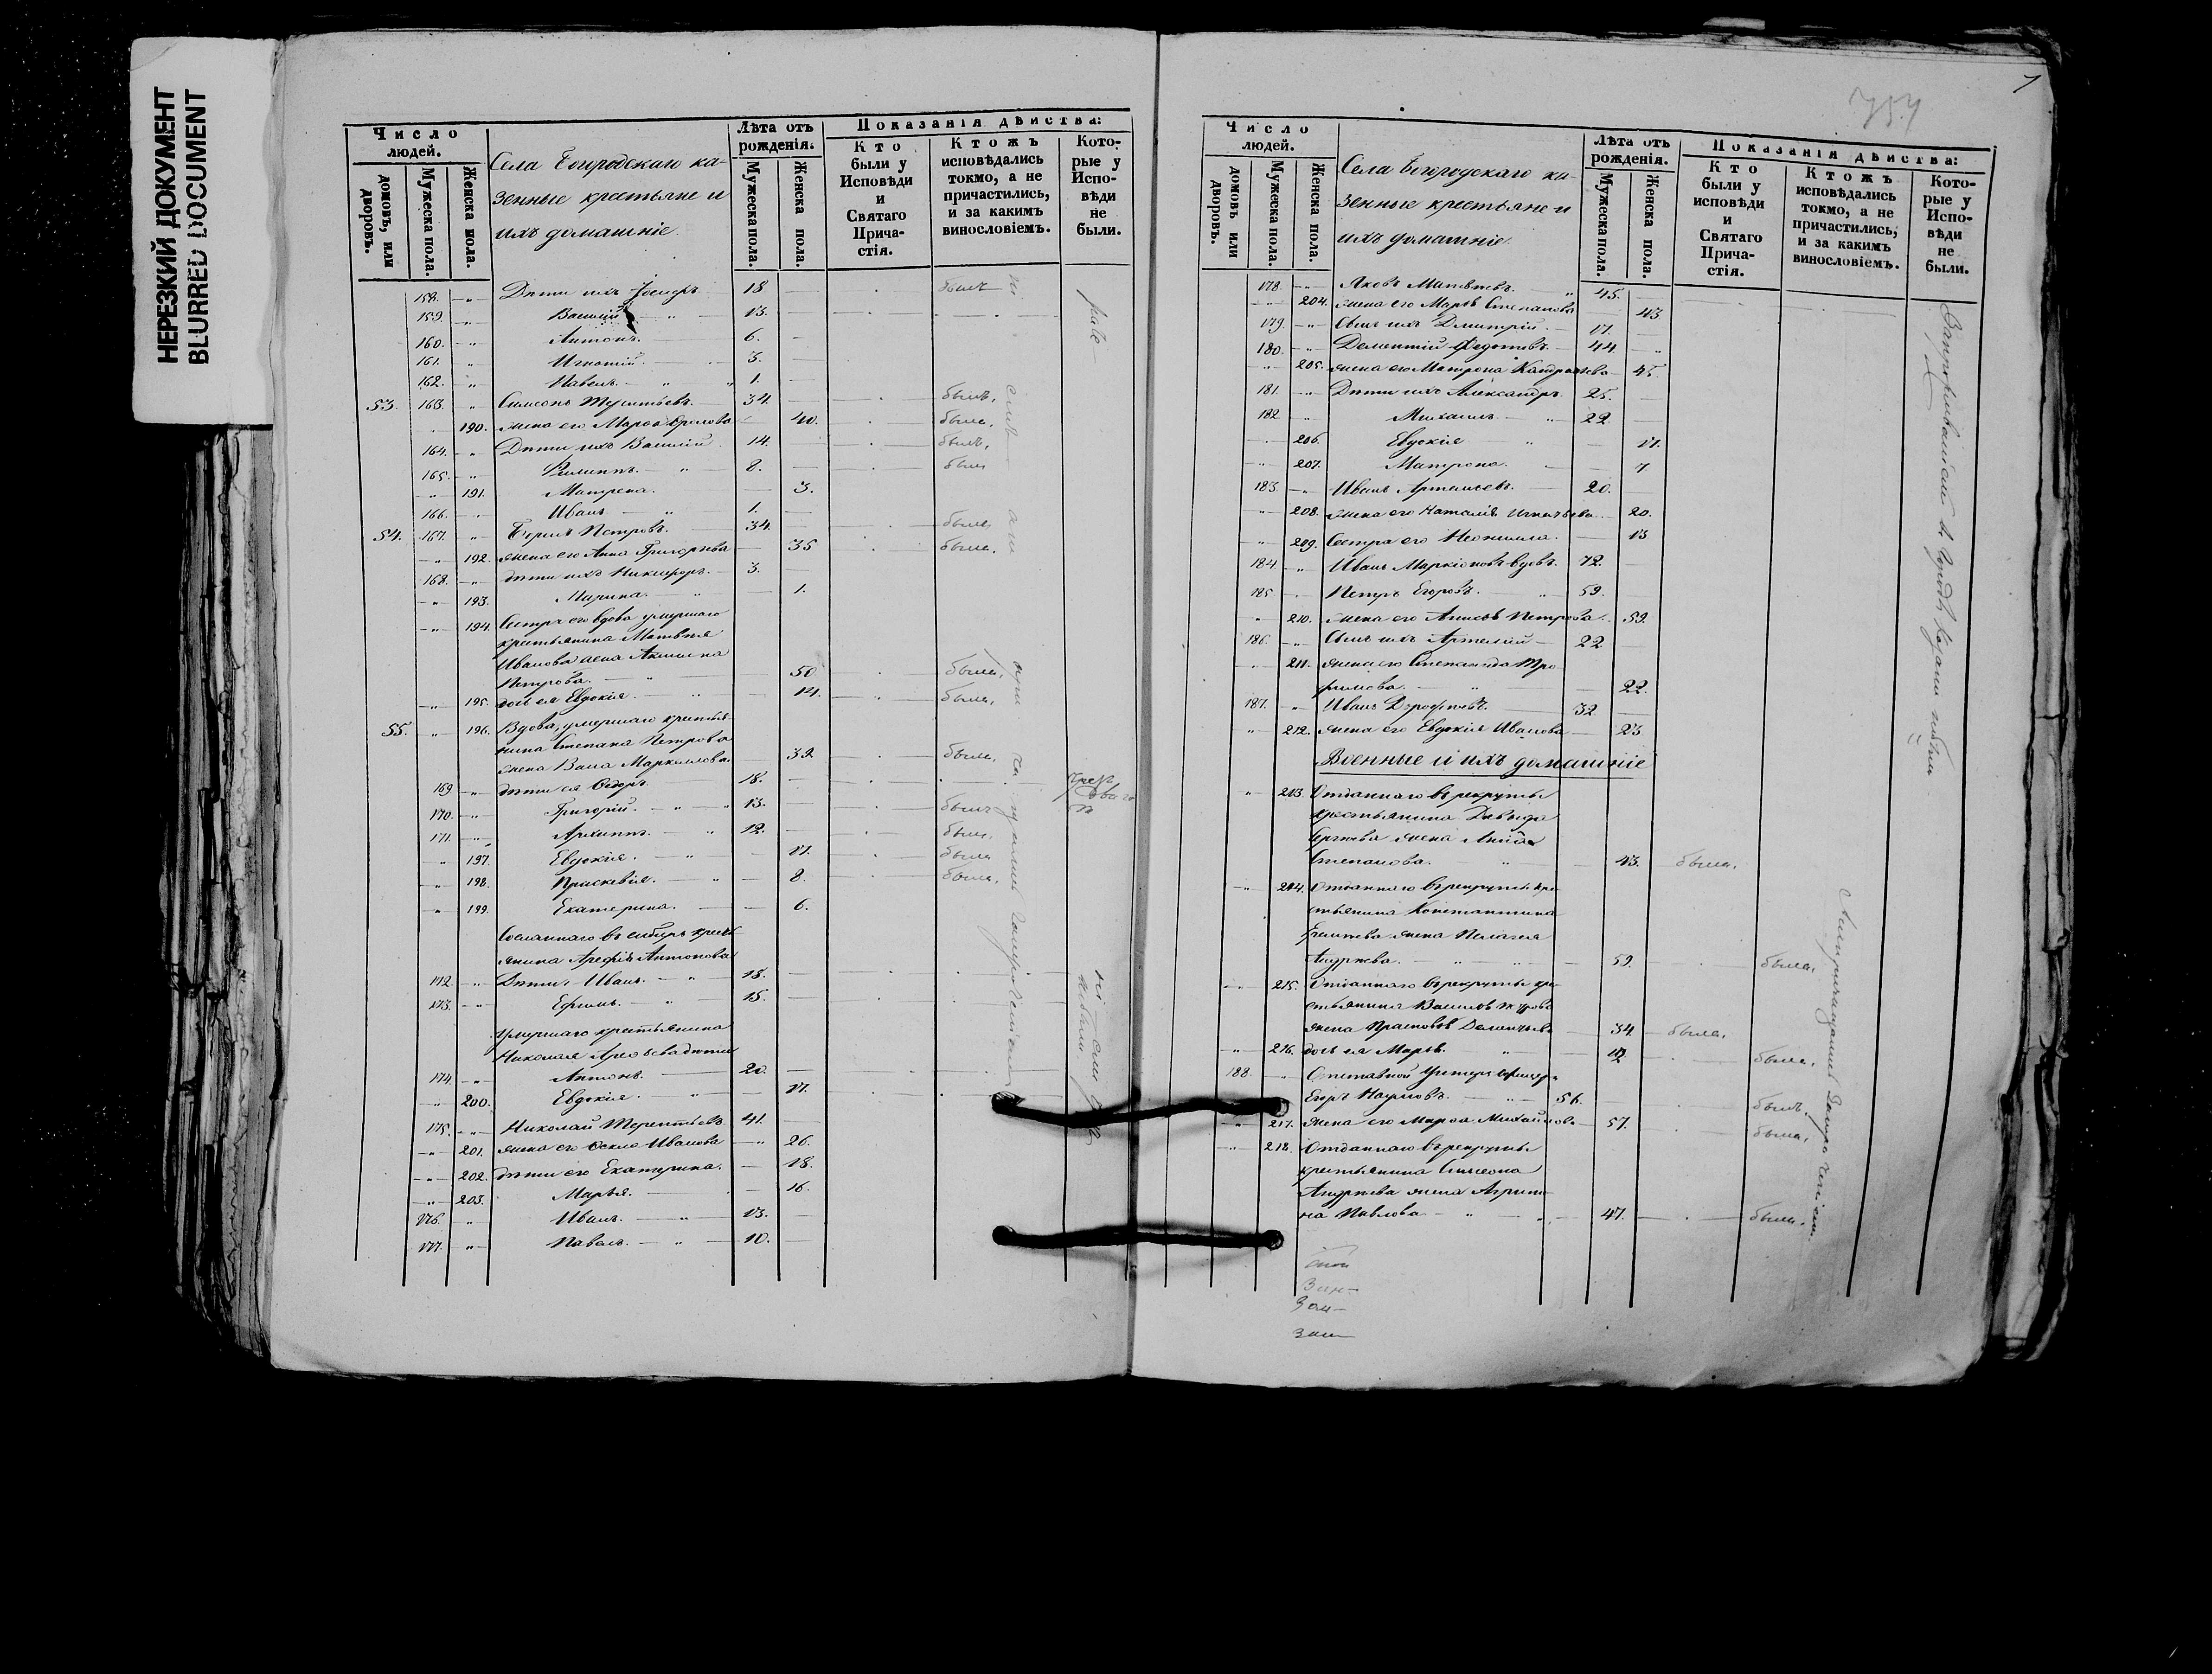 НЕРЕЗКИЙ ДОКУМЕНТ
BLURRED DOCUMENT
Число людей.
домовъ, или дворовъ.
Мужеска пола.
Женска пола.
Села Богородскаго ка-
зенные крестьяне и
ихъ домашніе.
Лѣта отъ рожденія.
Мужеска пола.
Женска пола.
Показанія дѣйства:
Кто были у Исповѣди и Святаго Прича-стія.
Ктожъ исповѣдались токмо, а не причастились, и за какимъ винословіемъ.
Кото-рые у Испо-вѣди не были.
158. Дѣти ихъ Іосифъ 18 былъ
159. Василій 13.
160. Антонъ. 6.
161. Игнатій. 3.
162. Павелъ. 1.
53. 163. Симеонъ Терентьевъ. 34. былъ.
190. жена его Марѳа 40. была.
164. Дѣти ихъ Василій 14. былъ.
165. Филиппъ. 8. был
191. Матрена. 3.
166. Иванъ 1.
54. 167. Петровъ. 34. былъ
192. жена его Анна Григорьева 35 была.
168. дѣти ихъ Никифоръ. 3.
193. Марина. 1.
194. Сестра его вдова умершаго
крестьянина Матвѣя
Иванова жена Акилина
Петрова. 50 была.
195. дочь ея Евдокія. 14. была.
55. 196. Вдова, умершаго крестья-
нина Степана Петрова
жена Васса Маркеллова 39 была.
169 дѣти ея Ѳедоръ. 18.
170. Григорій. 13. былъ
171. Архиппъ. 12. былъ
197. Евдокія. 17. была
198. Праскевія. 8. была.
199. Екатерина. 6.
Сосланнаго въ сибирь кресть-
янина Арефія Антонова
172. Дѣти Иванъ. 18.
173. Ефимъ. 15.
умершаго крестьянина
Николая Арефьева дѣти
174. Антонъ. 20.
200. Евдокія. 17.
175. Николай Терентьевъ 41.
201. жена его Ѳекла Иванова 26.
202. дѣти его Екатерина. 18.
203. Марья. 16.
176. Иванъ. 13.
177. Павелъ. 10.
754
Число людей.
домовъ или дворовъ.
Мужеска пола.
Женска пола.
Села Богородскаго ка-
зенные крестьяне и
ихъ домашніе.
Лѣта отъ рожденія.
Мужеска пола.
Женска пола.
Показанія дѣйства:
Кто были у исповѣди и Святаго Прича-стія.
Ктожъ исповѣдались токмо, а не причастились, и за какимъ винословіемъ.
Кото-рые у Испо-вѣди не были.
178. Яковъ Матвѣевъ. 45.
204. жена его Марья Степанова 43.
179. Сынъ ихъ Димитрій. 17.
180. Дементій Ѳедотовъ. 44.
205. жена его Матрона Кондратьева 45.
181. Дѣти ихъ Александръ 25.
182. Михаилъ 22
206. Евдокія 17.
207. Матрона. 7
183. Иванъ Артемьевъ. 20.
208. жена его Наталія Игнатьева 20.
209. Сестра его Неонилла. 13
184. Иванъ Маркіановъ вдовъ. 72.
185. Петръ Егоровъ. 59.
210. жена его Анисья Петрова. 59.
186. Сынъ ихъ Артемій 22
211. жена его Степанида Тро-
фимова. 22.
187. Иванъ Дорофеевъ. 32
212. жена его Евдокія Иванова 23
Военные и ихъ домашніе
213. Отданнаго въ рекруты
крестьянина Давида
Сергѣева жена
Степанова. 43. была.
214. Отданнаго въ рекруты кре-
стьянина Константина
жена Пелагея
Андреева. 59. была.
215. Отданнаго въ рекруты кре-
стьянина Василья
жена Прасковья Дементьева 34 была.
216. дочь ея Марья. 12. была.
188 Отставной Унтеръ офицеръ
Егоръ Наумовъ. 56. былъ.
217. жена его Марѳа Михайлова 57. была.
218. Отданнаго въ рекруты
крестьянина Симеона
Андреева жена Агрипи-
на Павлова 47. была.